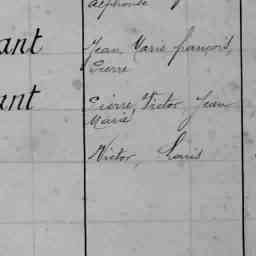 alphonse
ant Jean Marie françois,
Pierre
ant Pierre, Victor Jean
Marie
Victor, Louis